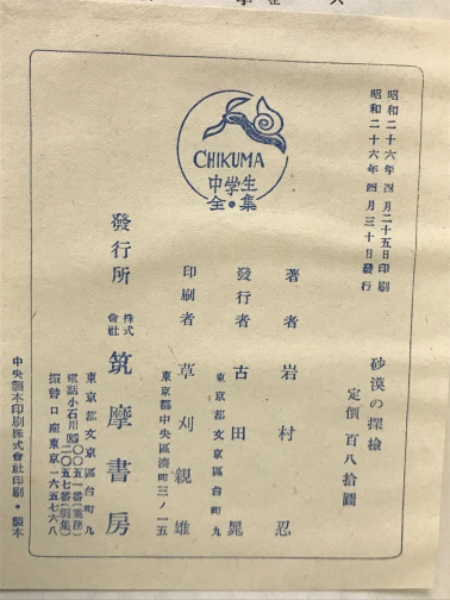 CHIKUMA
中学生
全・集
昭和二十六年四月二十五日印刷
昭和二十六年四月三十日發行
砂漠の探檢
定價 百八拾圓
著者 岩村忍
發行者 古田晁
東京都文京區台町九
印刷者 草刈親雄
東京都中央區湊町三ノ一五
發行所 株式會社 筑摩書房
東京都文京區台町九
振替口座東京一六五七六八
中央製本印刷株式會社印刷・製本